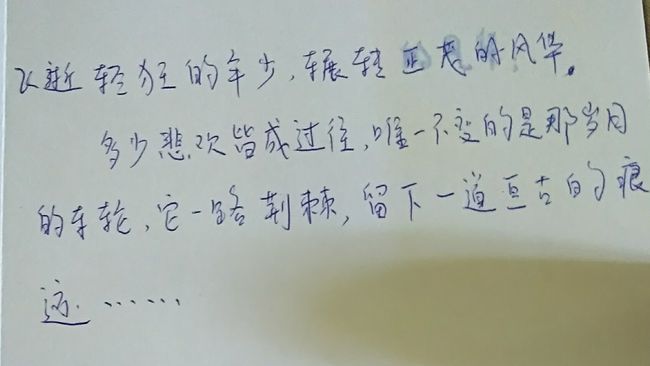 飞逝轻狂的年少，辗转正茂的风华。
多少悲欢皆成过往，唯一不变的是那岁月
的车轮，它一路荆棘，留下一道亘古的痕
迹......